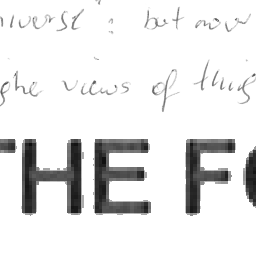 niverse": but now
ghe views of thing
THE FO